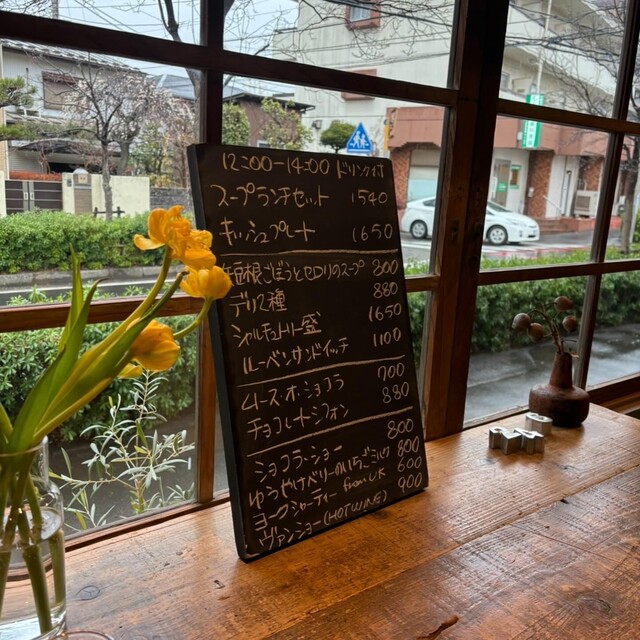 12:00-14:00 ドリンク付
スープランチセット 1540
キッシュプレート 1650
垣根ごぼうとセロリのスープ 800
デリ2種 880
シャルキュトリー盛 1650
ルーベンサンドイッチ 1100
ムース・オ・ショコラ 700
チョコレートシフォン 880
ショコラ・ショー 800
ゆうやけベリーのいちごミルク 800
ヨークシャーティー from UK 600
ヴァンショー (HOT WINE) 900